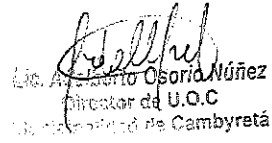 Lic. Osorio Núñez
Director de U.O.C
de Cambyretá